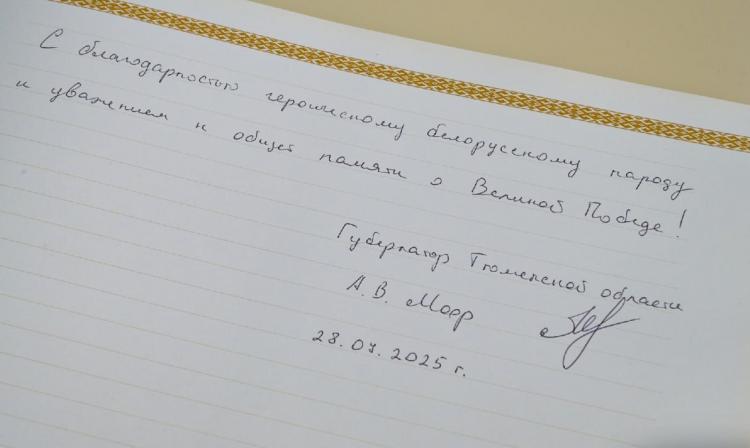 С благодарностью героическому белорусскому народу
и уважением к общей памяти о Великой Победе!
Губернатор Тюменской области
А.В. Моор
28.07.2025 г.